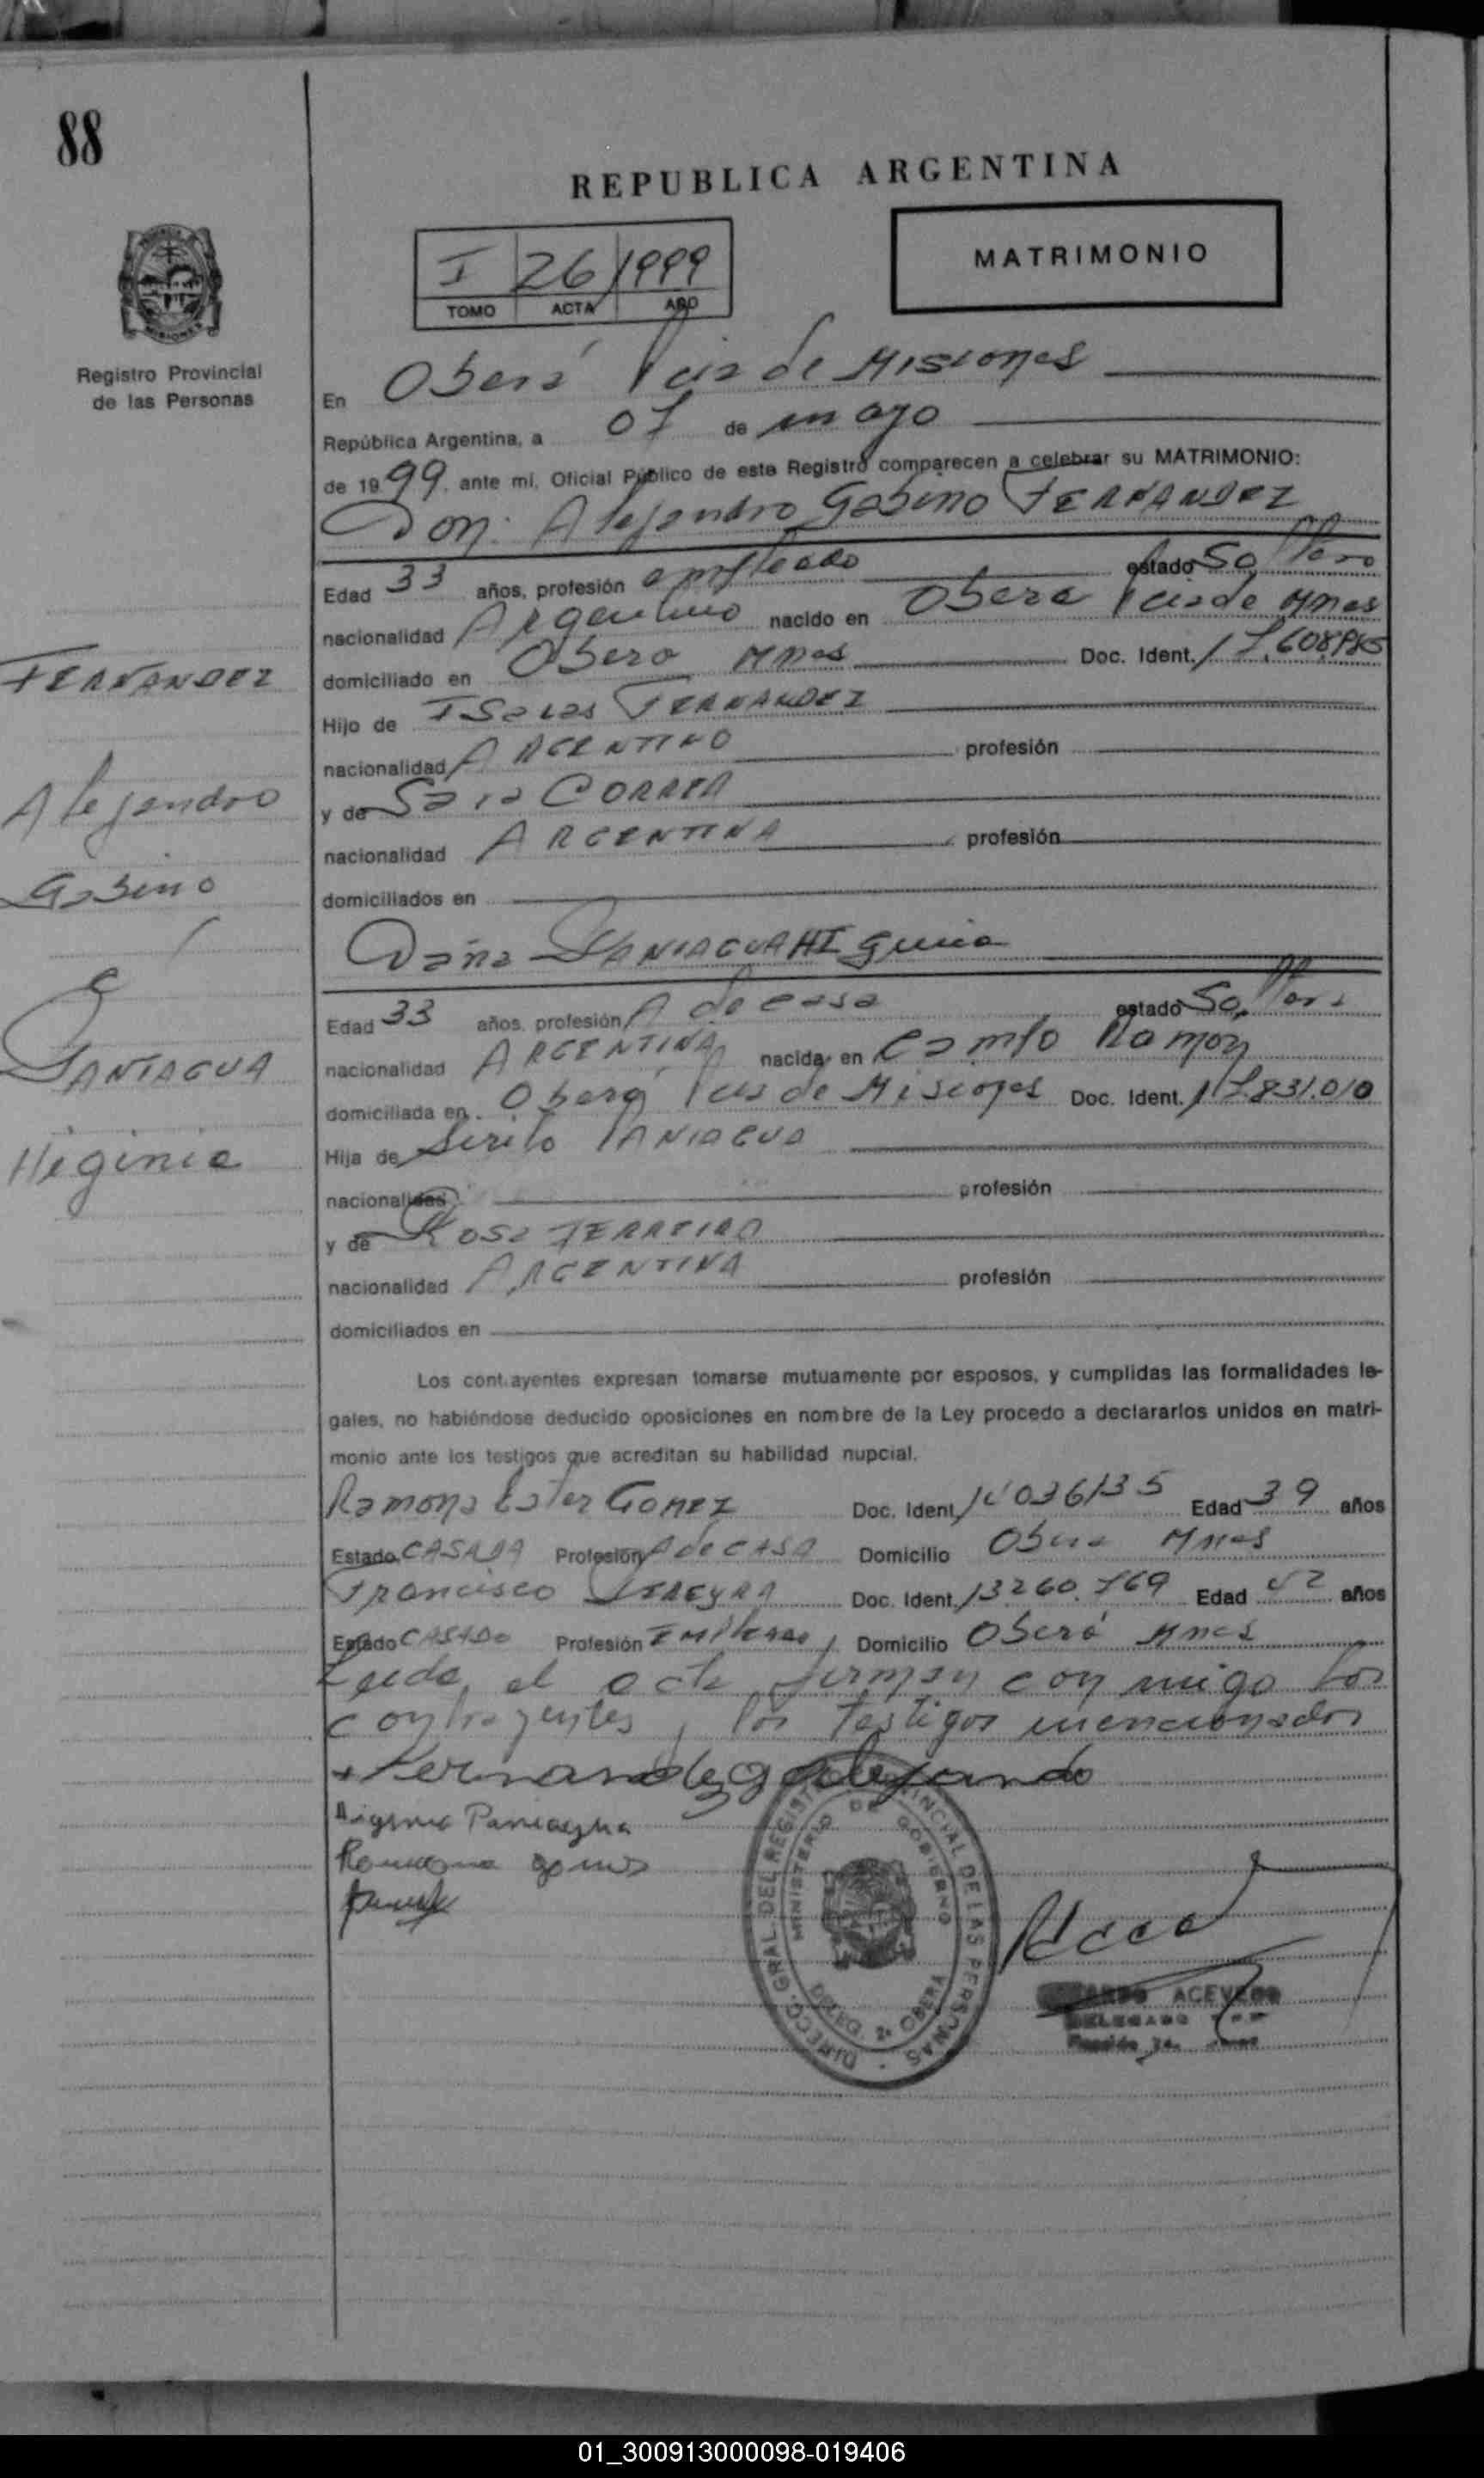 88
REPUBLICA ARGENTINA
I 26 1999
TOMO ACTA AÑO
MATRIMONIO
Registro Provincial
de las Personas
En Oberá Pcia de Misiones
República Argentina, a 07 de mayo
de 1999. ante mi, Oficial Público de este Registro comparecen a celebrar su MATRIMONIO:
Don: Alejandro Gabino FERNANDEZ
Edad 33 años, profesión empleado estado Soltero
nacionalidad Argentino nacido en Obera Pcia de Mnes
domiciliado en Obera Mnes Doc. Ident. 17.608.985
Hijo de Isaias FERNANDEZ
nacionalidad ARGENTINO profesión
y de Sara CORREA
nacionalidad ARGENTINA profesión
domiciliados en
Doña PANIAGUA HIginia
Edad 33 años, profesión A de casa estado Soltera
nacionalidad ARGENTINA nacida en Campo Ramon
domiciliada en Oberá Pcia de Misiones Doc. Ident. 17.831.010
Hija de PANIAGUA
nacionalidad profesión
y de Rosa FERREIRA
nacionalidad ARGENTINA profesión
domiciliados en
FERNANDEZ
Alejandro
Gabino
PANIAGUA
Higinia
Los contrayentes expresan tomarse mutuamente por esposos, y cumplidas las formalidades le-
gales, no habiéndose deducido oposiciones en nombre de la Ley procedo a declararlos unidos en matri-
monio ante los testigos que acreditan su habilidad nupcial.
Ramona Ester GOMEZ Doc. Ident. 14036135 Edad 39 años
Estado CASADA Profesión A de CASA Domicilio Obera Mnes
Francisco PEREYRA Doc. Ident. 13.260.769 Edad 42 años
Estado CASADO Profesión Empleado Domicilio Oberá Mnes
Leida el acta firman con migo los
contrayentes y los testigos mencionados
Fernandez g alejandro
Higinia Paniagua
Ramona gomes
DIRECC. GRAL. DEL REGISTRO PROVINCIAL DE LAS PERSONAS
MINISTERIO DE GOBIERNO
DELEG. 2ª OBERA
ACEVEDO
DELEGADO
01_300913000098-019406